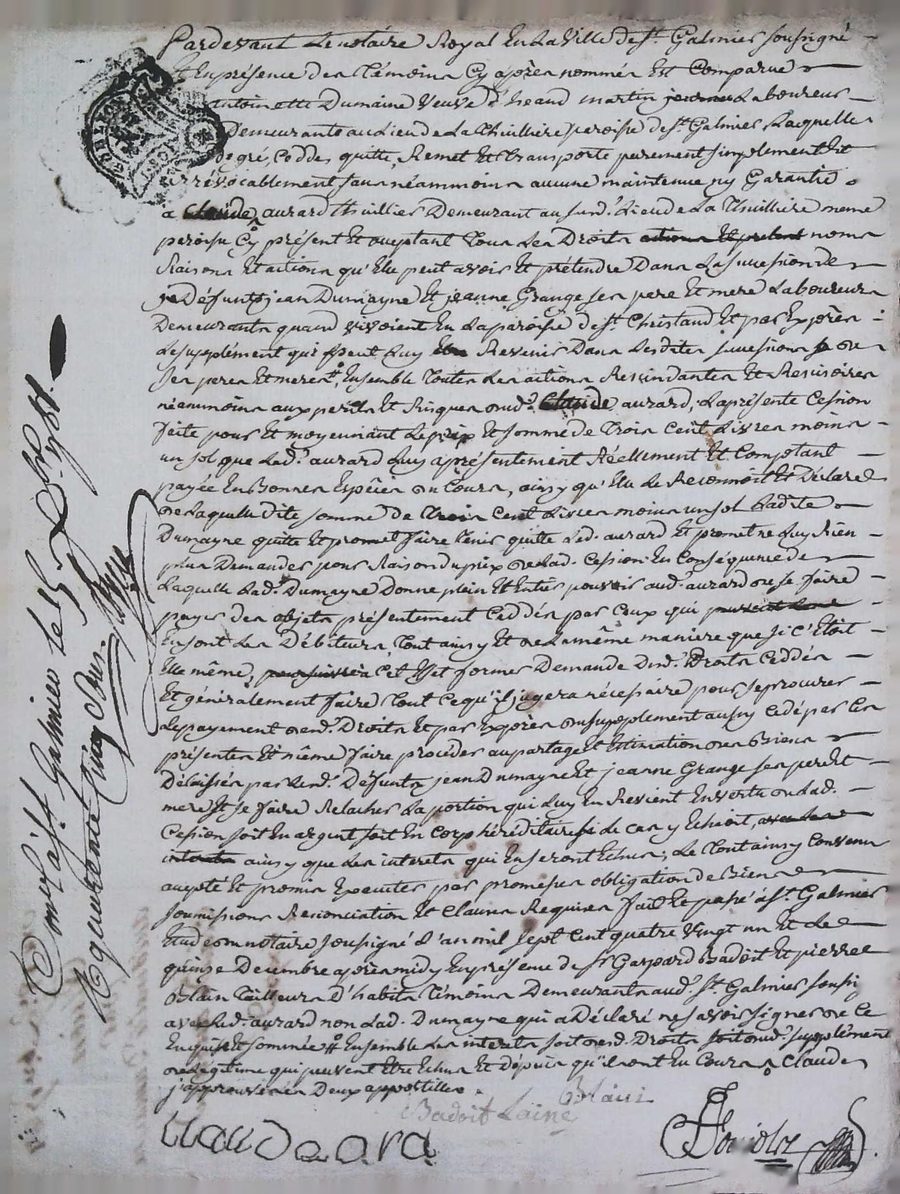 Pardevant Le notaire Royal En La Ville de St. Galmier soussigné
Et En présence des Témoins Cy après nommés Est Comparue
antoinette Dumaine Veuve d' heaud martin Laboureur
Demeurante au Lieu de La Thuilliere paroisse de St. Galmier Laquelle
de gré, Cedde, quitte, Remet Et transporte purement simplement Et
irrévocablement sans néammoins aucune maintenue ny Garantie
à Claude aurard thuillier Demeurant au susd. Lieu de La Thuilliere meme
paroisse Cy présent Et aceptant Tous Les Droits actions Et noms
Raisons Et actions qu'Elle peut avoir Et prétendre Dans La succession de
Défunts jean Dumayne Et jeanne Grange ses pere Et mere Laboureurs
Demeurants quand vivoient En La paroisse de St. Christaud Et par Exprès
Le supplément qui peut Luy Revenir Dans Lesdites successions de
ses peres Et meres, Ensemble Toutes Les actions Rescindantes Et Rescisoires
néammoins aux perils Et Risques dud. Claude aurard, La présente Cession
faite pour Et moyennant Le prix Et somme de Trois Cent Livres moins
un sol que Led. aurard Luy a présentement Réellement Et Comptant
payée En Bonnes Espèces du Cours, ainsy qu'Elle Le Reconnoit Et Déclare
de Laquelle dite somme de Trois Cent Livres moins un sol Ladite
Dumayne quitte Et promet faire tenir quitte Led. aurard Et promet ne Luy Rien
plus Demander pour Raison du prix de Lad. Cession. En Conséquence de
Laquelle Lad. Dumayne Donne plein Et Entier pouvoir aud. aurard de se faire
payer des objets présentement Ceddés par Ceux qui
En sont Les Débiteurs, Tout ainsy Et de La même maniere que si C'Etoit
Elle même, à Cet Effet former Demande Desd. Droits Ceddés
Et généralement faire Tout Ce qu'il jugera nécessaire pour se procurer
Le payement desd. Droits Et par Exprès du supplement aussy Cedé par Ces
présentes Et même faire procéder au partage Et Estimation des Biens
Délaissés par Lesd. Défunts jean Dumayne Et jeanne Grange ses pere Et
mere Et se faire Relacher La portion qui Luy En Revient En vertu de Lad.
Cession soit En argent soit En Corps héréditaires si de Cas y Echoit,
ainsy que Les interets qui En seront Echus, Le Tout ainsy Convenu
acepté Et promis Executer par promesses obligation de Biens
soumissions Renonciation Et Clauses Requises fait Et passé à St. Galmier
Etude du notaire soussigné L'an mil sept Cent quatre Vingt un Et Le
quinze Decembre après midy En présence de Sr Gaspard Badoit Et pierre
Blain Tailleurs D'habits Témoins Demeurants aud. St. Galmier soussig
avec Led. aurard non Lad. Dumayne qui a Déclaré ne savoir signer de Ce
Enquise Et sommée Ensemble Les interets soit desd. Droits soit dud. supplément
de Légitime qui peuvent Etre Echus Et Depuis qu'ils ont Eu Cours Claude
j'approuve Les Deux appostilles
Blain
Badoit Lainé
Claud o ara
Con.lé à St. Galmier le